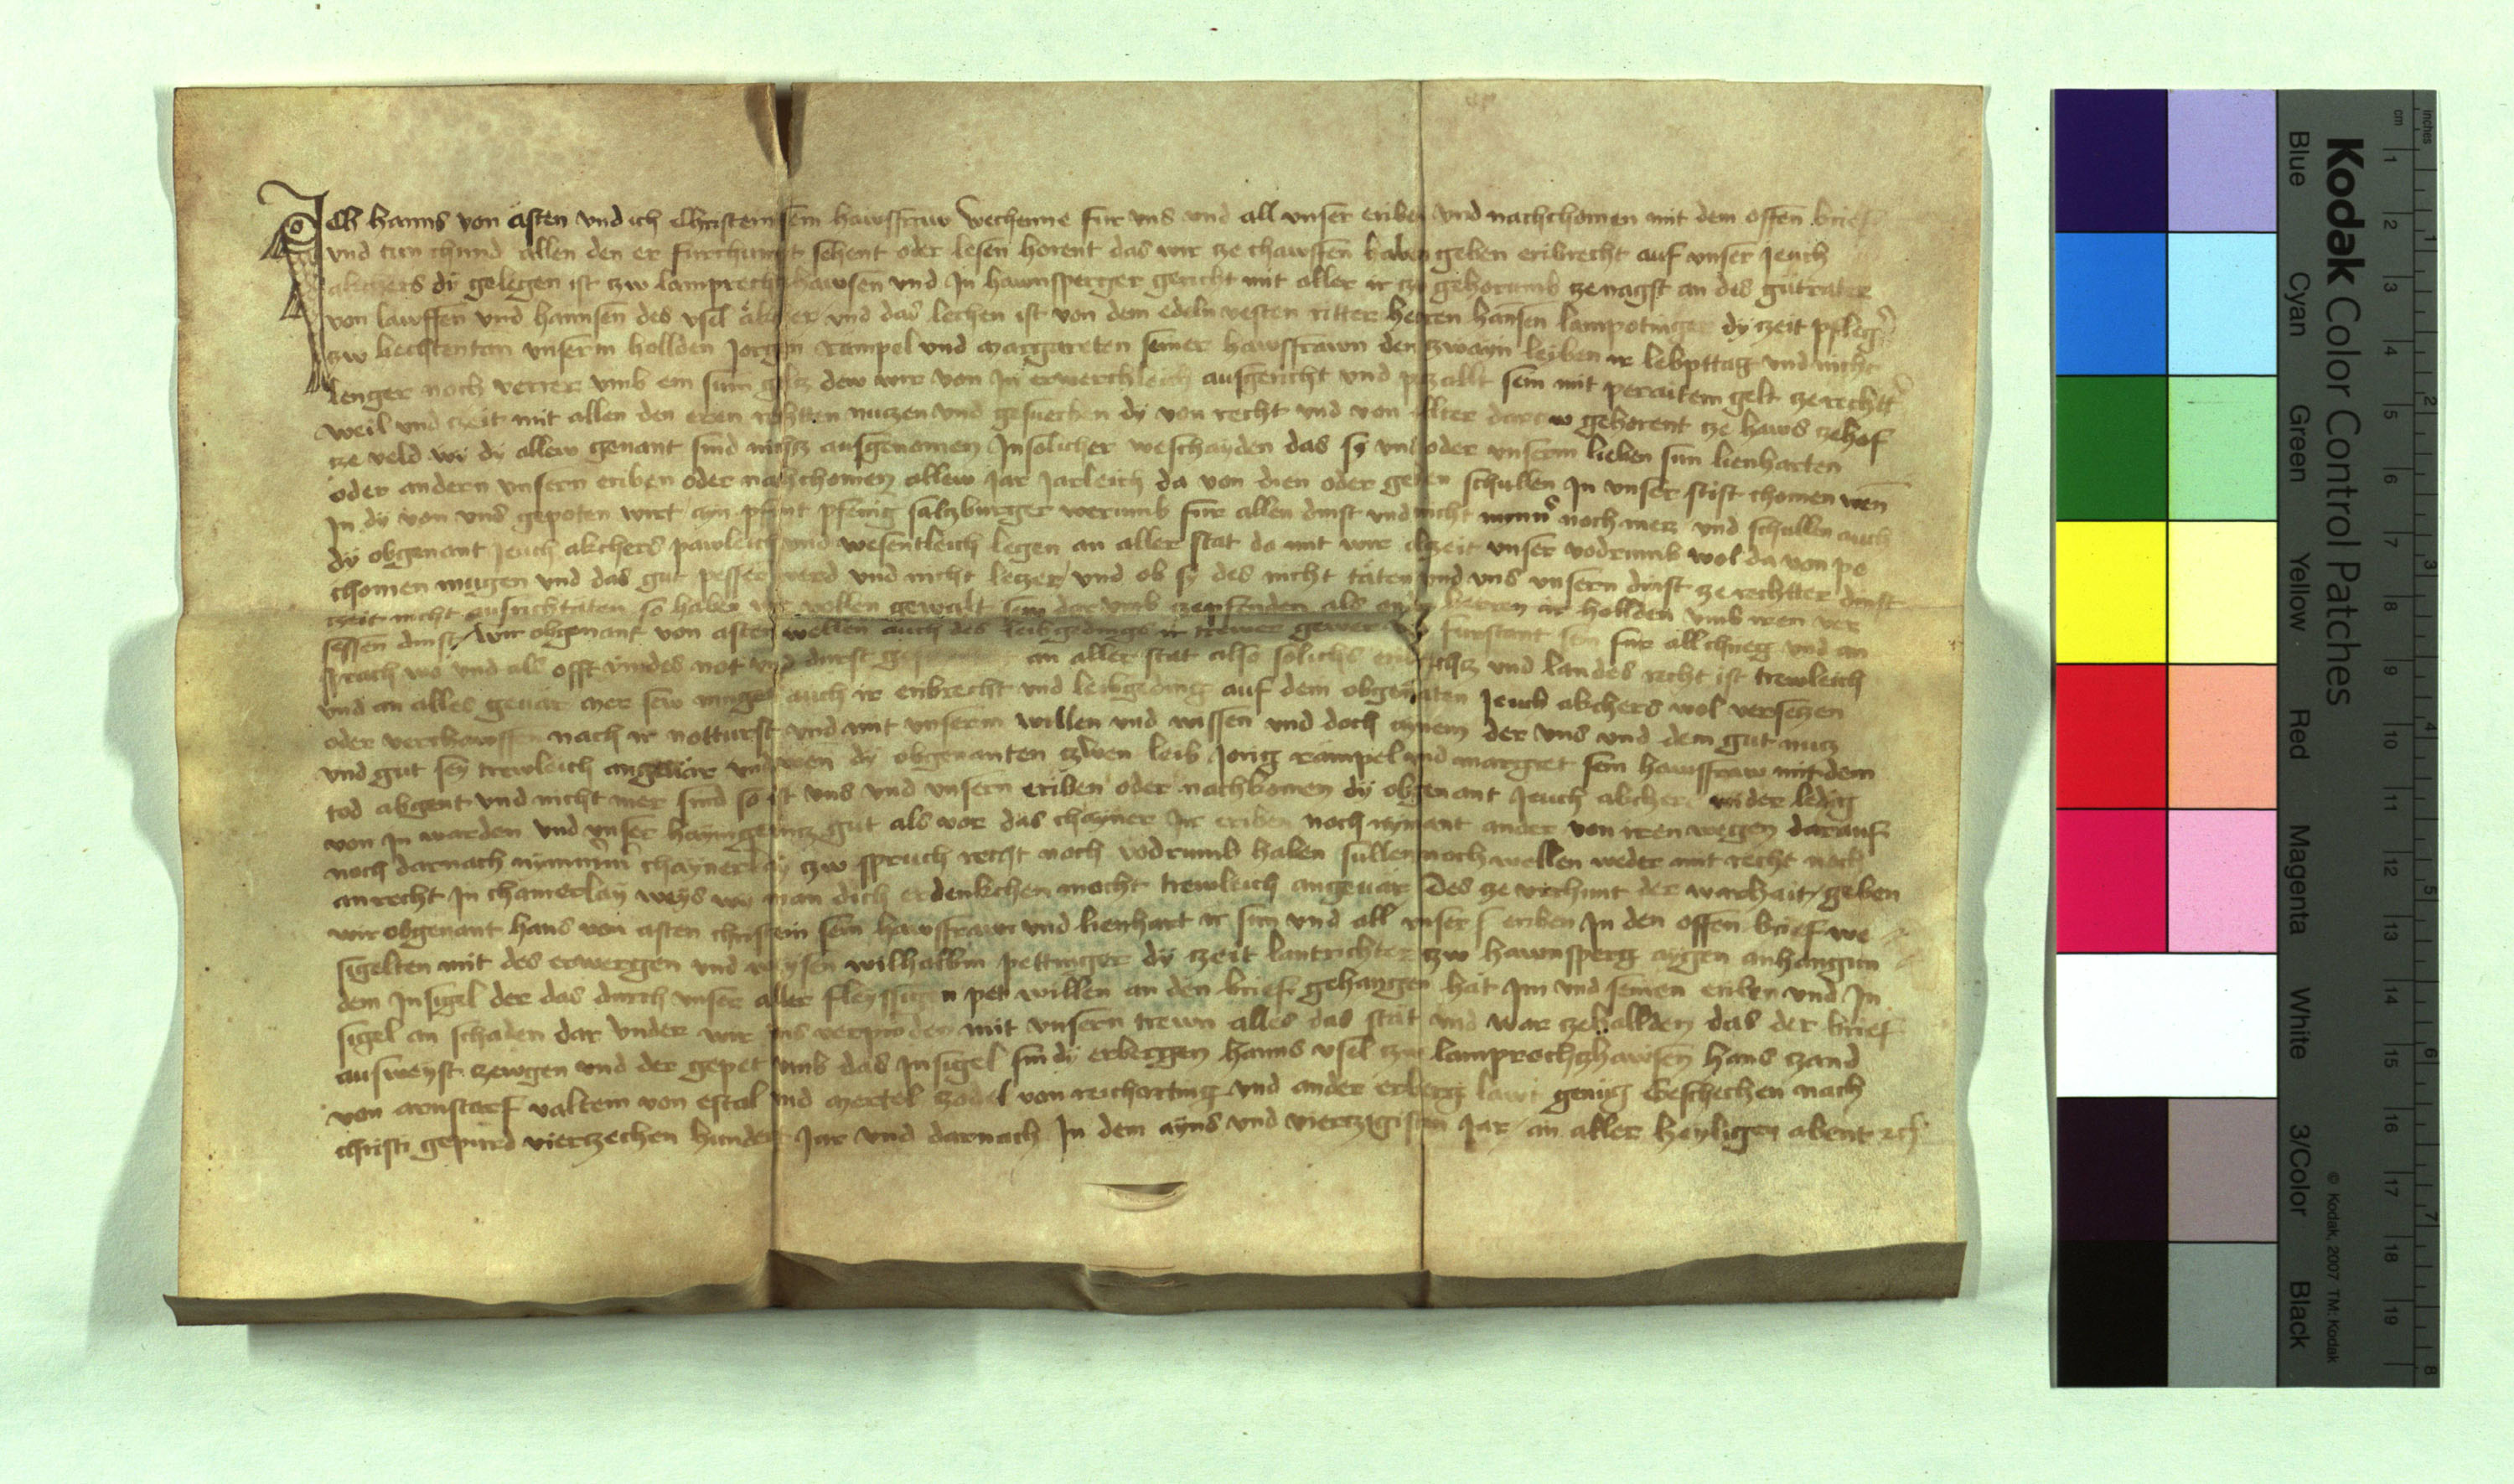 Ich hanns von asten vnd ich Christein sein hawsfraw vechenne für vns vnd all vnser eriben vnd nachchomen mit dem offen brief
vnd tun chund allen den er fürchumpt sehent oder lesen horent das wir ze chawffen haben geben eribrecht auf vnser Jeuch
akchers dy gelegen ist zw lamprechtzhawsen vnd In hawnsperger gericht mit aller ir zu gehorumb ze nagst an des gutrater
von lawffen vnd hannsen des vsel äkcher vnd das lechen ist von dem edeln vesten ritter herren hansen lampotinger dy zeit pfleger
zw vnserm hollden Jorgen rampel vnd margareten seiner hawsfrawn den zwayn leyben ir lebpttag vnd nicht
lenger noch verrer vmb ein sum geltz dew wir von In erwerchleich ausgericht vnd pezallt sein mit peraitem gelt ze rechter
weil vnd zeit mit allen den eren rechtten nutzen vnd gesuechen dy von recht vnd von alter darzw gehorent ze haws ze hof
ze veld wy dy allew genant sind nichtz ausgenomen In solicher weschayden das sy vns oder vnserm lieben sun lienharten
oder andern vnsern eriben oder nachchomen allew Jar Jarleich da von dien oder geben schullen In vnser stift chomen wen
In dy von vns gepoten wirt ayn pfunt pfenig salzburger werumb für allen dinst vnd nicht minner noch mer vnd schullen auch
dy obgenant Jeuch akchers pawleich vnd wesentleich legen an aller stat da mit wir alzeit vnser vodrumb wol da von pe
chomen mugen vnd das gut pesser werd vnd nicht letzer vnd ob sy des nicht täten vnd vns vnsern dinst ze rechtter dinst
zeit nicht ausrichtäten so haben wir vollen gewalt sew dar vmb ze pfenden als herren ir hollden vmb iren ver
sessen dinst wir obgenant von asten wellen auch des leibgedings ir trewer gewer vnd fürstant sein für all chrieg vnd an
sprach wo vnd als offt in des not vnd durft an aller stat also solichs eribrechtz vnd landes recht ist trewleich
vnd an alles geuär mer sew mugen auch ir eribrecht vnd leibgeding auf dem obgenäten Jeuch akchers wol versetzen
oder verchawffen nach ir notturft vnd mit vnserm willen vnd wissen vnd doch aynem der vns vnd dem gut nutz
vnd gut sey trewleich angeuär vnd wen dy obgenanten zwen leib Jorig rämpel vnd margret sein hawsfraw mit dem
tod abgent vnd nicht mer sind so ist vns vnd vnsern eriben oder nachkomen dy obgenant Jeuch akchers wider ledig
von In warden vnd vnser haymgeuntz gut als vor das chayner Ir eriben noch nymant ander von iren wegen darauf
noch darnach nymmer chaynerlay zw spruch recht noch vodrumb haben sullen noch wellen weder mit recht noch
an recht In chainerlay weys wy man dich erdenkchen mocht trewleich angeuär Des ze vrchunt der warhait geben
wir obgenant hans von asten christein sein hawsfraw vnd lienhart ir sun vnd all vnser eriben In den offen brief we
sigelten mit des erwergen vnd weysen wilhallbm pettinger dy zeit lantrichter zw hawnsperg aygen anhangun
dem Insigel der das durch vnser aller fleyssigen pet willen an den brief gehangen hat Im vnd seinen eriben vnd In
sigel an schaden dar vnder wir vns verpinden mit vnsern trewn alles das stät vnd war ze hallden das der brief
ausweyst zewgen vnd der gepet vmb das Insigel sin dy erbergen hanns vsel zw lamprechtzhawsen hans zand
von arnstarf valtein von estal vnd mertel zodel von reicharting vnd ander erberg lawt genug Geschechen nach
christi gepurd vierzechen hundert Jar vnd darnach In dem ayns vnd vierzigisten Jar an aller heyligen abent
Kodak Color Control Patches
Blue Cyan Green Yellow Red Magenta White 3/Color Black
© Kodak, 2007 TM: Kodak
cm 1 2 3 4 5 6 7 8 9 10 11 12 13 14 15 16 17 18 19
inches 1 2 3 4 5 6 7 8